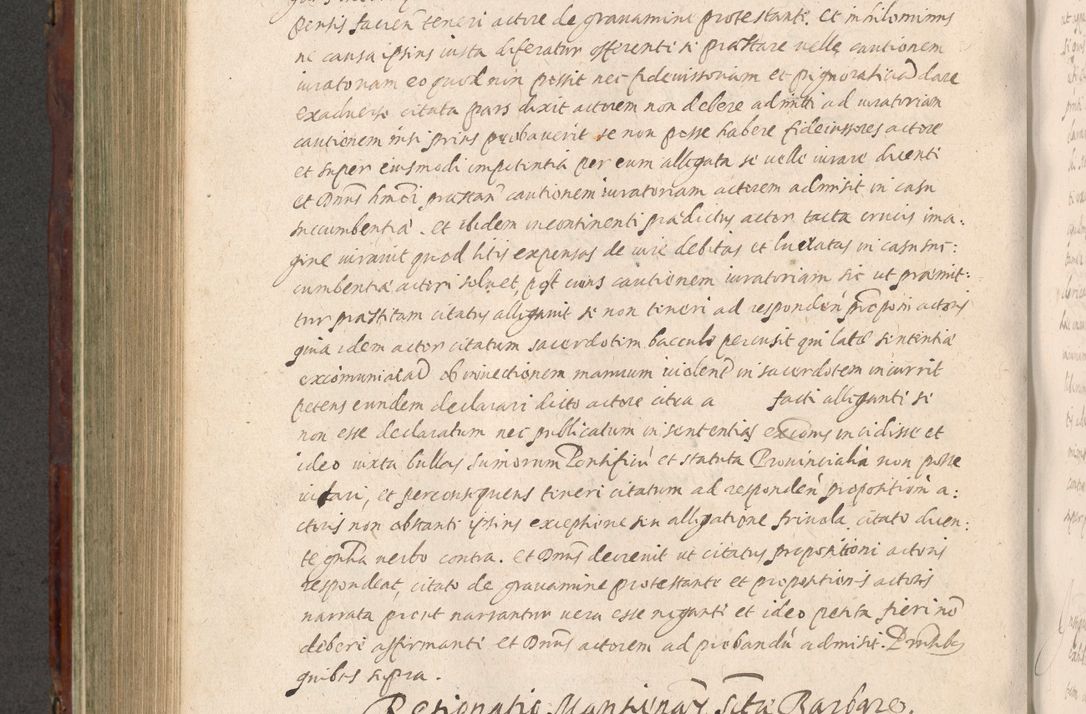 pensis facien̄ teneri actore de gravamine protestante. Et in hilominus
ne causa ipsius iusta diferatur offerenti se præstare velle cautionem
iuratoriam eo quod non possit nec fideiussoriam et pignoratitiā dare
exadverso citata pars dixit actorem non debere admitti ad iuratoriam
cautionem nisi prius probaverit se non posse habere fideiussores actore
et super eiusmodi impotentia per eum allegata se velle iurare dicenti
et Dnūs hmōi præstan̄ cautionem iuratoriam actorem admisit in casu
succumbentiæ. et ibidem incontinenti prædictus actor tacta crucis ima:
gine iuravit quod litis expensas de iure debitas et luxatas in casu suc:
cumbentiæ actori solvet, post cuius cautionem iuratoriam sic ut præmit:
tur præstitam citatus allegavit se non teneri ad responden̄ proponi actoris
quia idem actor citatum sacerdotem bacculo percusit qui latæ sententiæ
excomuniatā ob iniectionem manuum violent̄ in sacerdotem incurrit
petens eundem declarari dicto actore citra a facti alleganti se
non esse declaratum nec publicatum in sententias excōms incidisse et
ideo iuxta bullas sumorum Pontificū et statuta Provincialia non posse
vitari, et per consequens teneri citatum ad responden̄ propositioni a:
ctoris non obstante ipsius exceptione seu allegatione frivola, citato dicen:
te gnāla verbo contra. Et Dnūs decrevit ut citatus propositioni actoris
respondeat, citato de gravamine protestante et propositionis actoris
narrata prout narrantur vera esse neganti et ideo petita fieri nō
deberi affirmanti et Dnūs actorem ad probandū admisit. Pntibus
quibus supra.
Resignatio Mansionar̄ Sctæ Barbare.